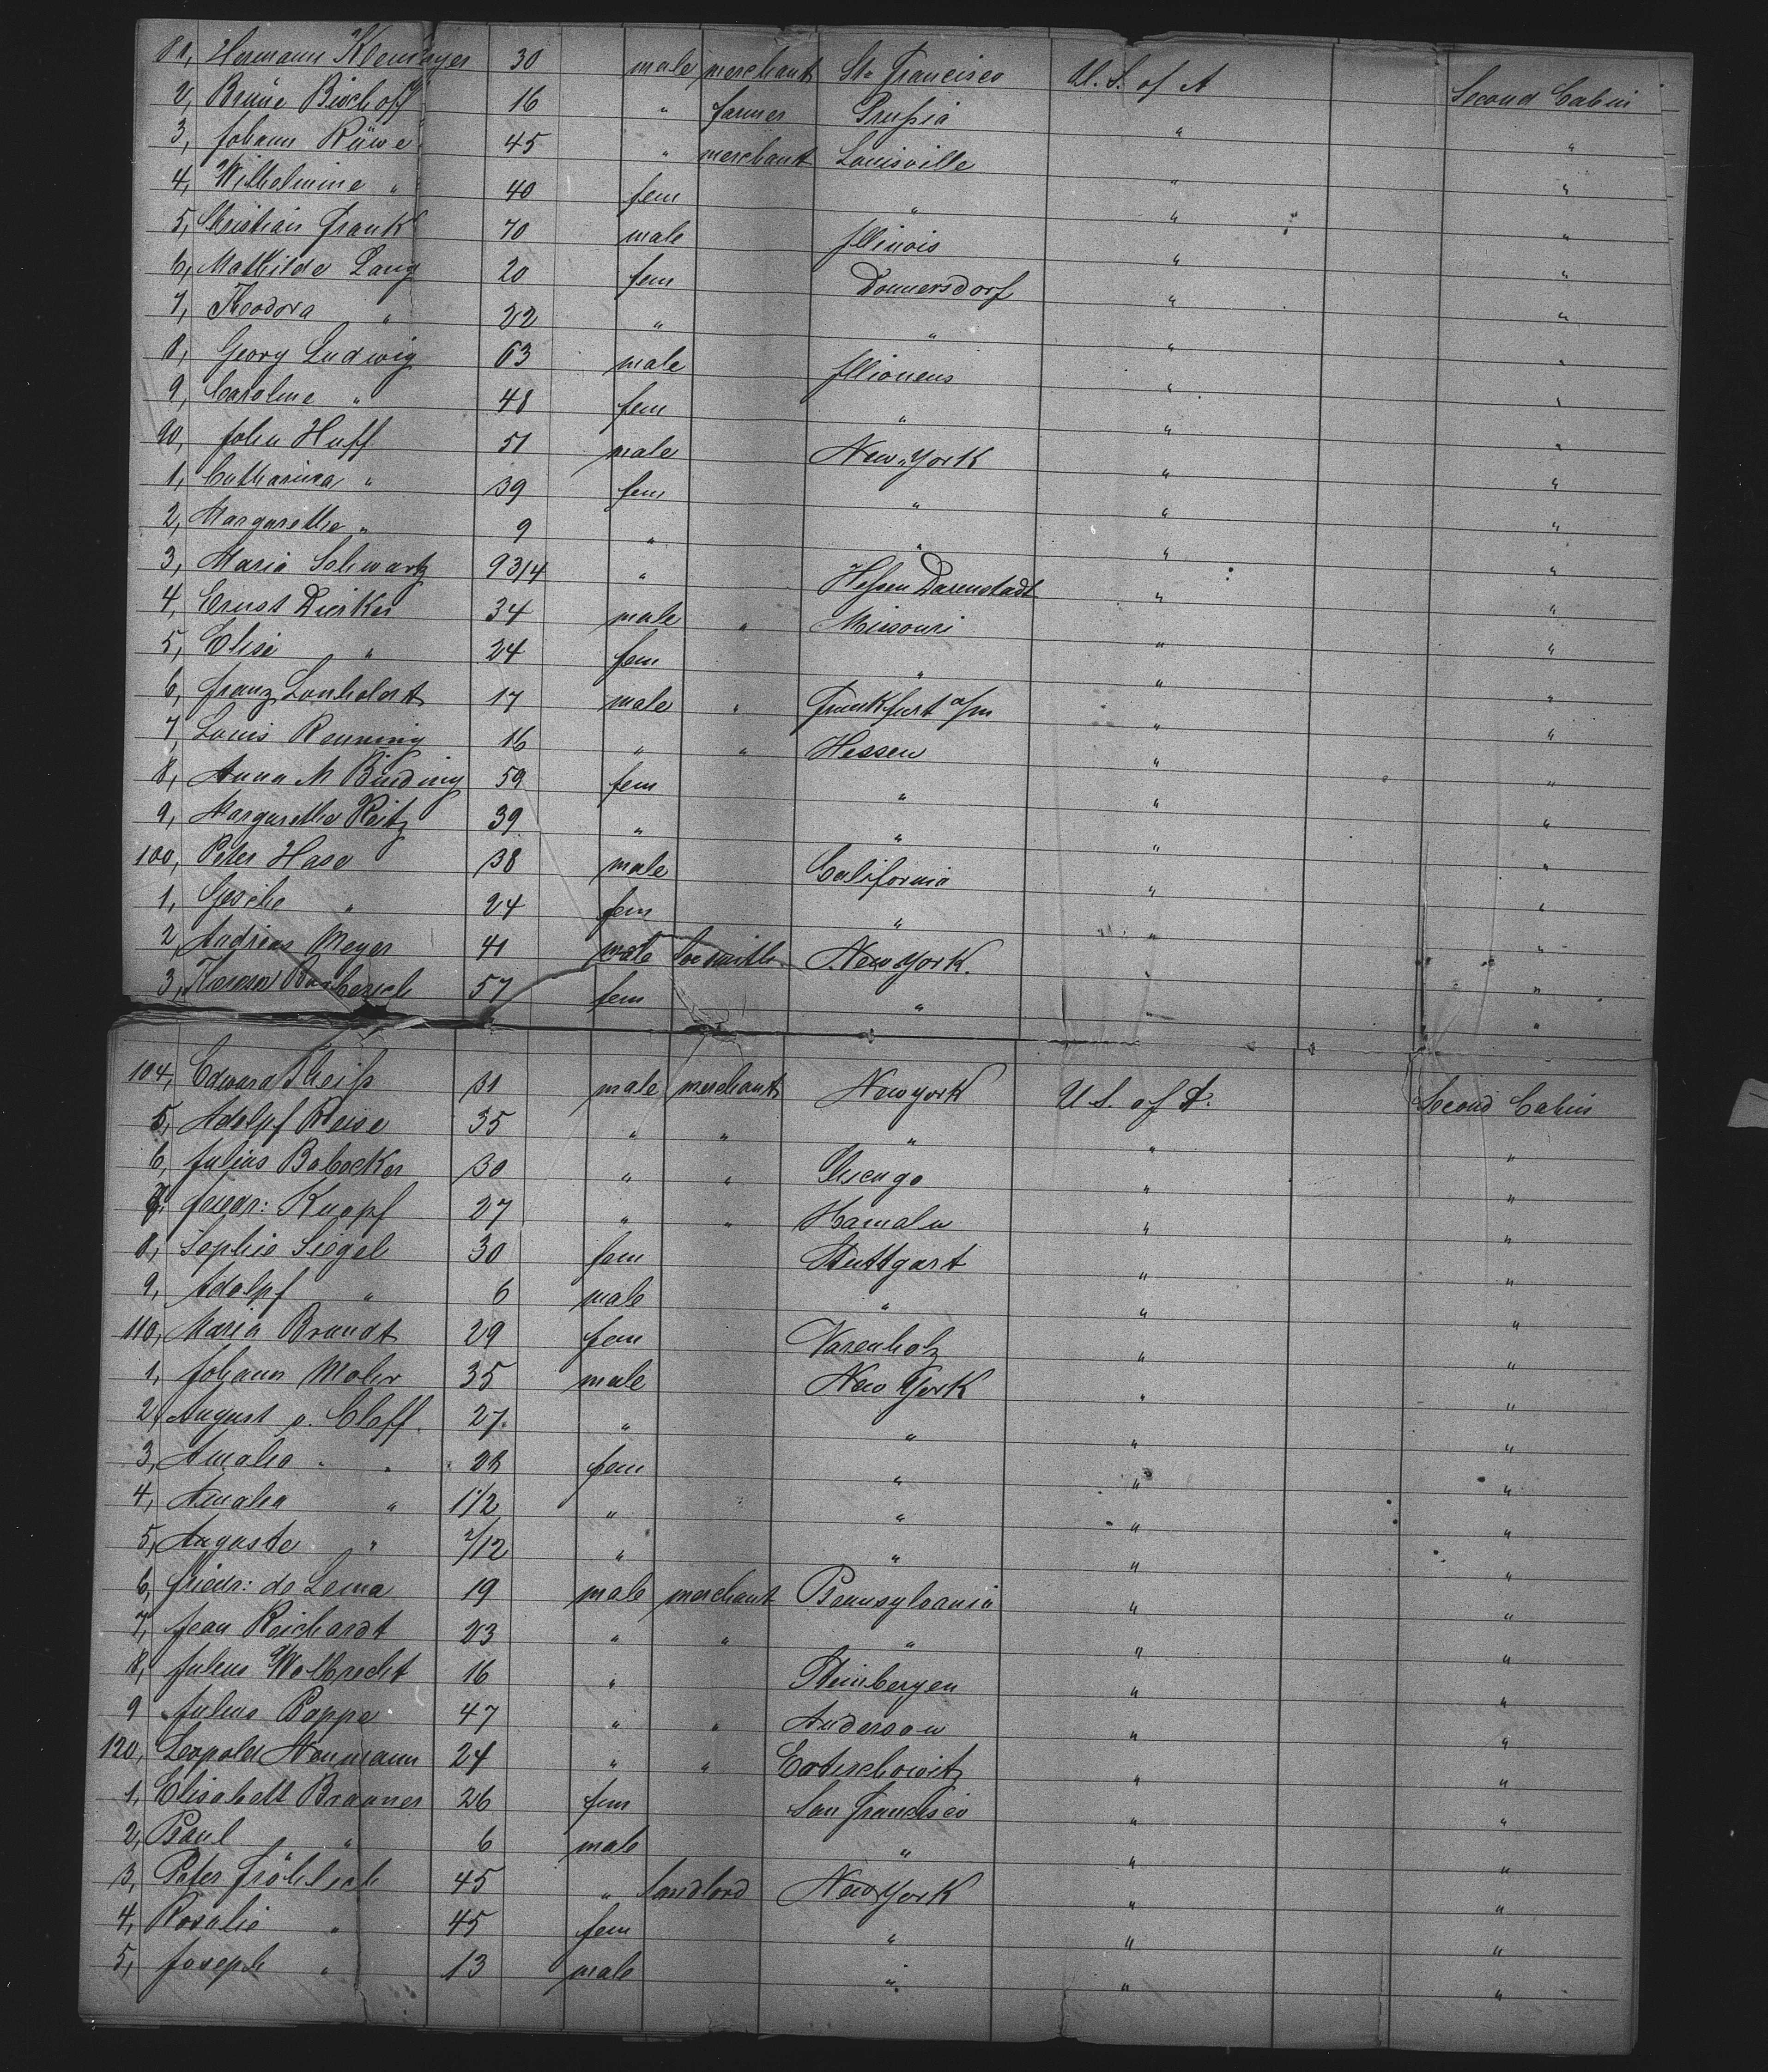 81, Hermann Klemayer 30 male merchant St. Francisco U.S. of A Second Cabin
2, Brüne Bischoff 16 " farmer Prußia " "
3, Johann Rüwe 45 " merchant Louisville " "
4, Wilhelmine " 40 fem " " "
5, Christian Frank 70 male Illinois " "
6, Mathilde Lang 20 fem Donnersdorf " "
7, Theodora " 22 " " " "
8, Georg Ludwig 63 male Illionens " "
9, Caroline " 48 fem " " "
90, John Huff 51 male New-York " "
1, Catharina " 39 fem " " "
2, Margarethe " 9 " " " "
3, Maria Schwartz 9 3/4 " Heßen Darmstadt " "
4, Ernst Dierker 34 male " Missouri " "
5, Elise " 24 fem " " "
6, Franz Lonholdt 17 male " Frankfurt a/m " "
7, Louis Renning 16 " " Hessen " "
8, Anna M Binding 59 fem " " "
9, Margaretha Reitz 39 " " " "
100, Peter Hase 38 male California " "
1, Gesche " 24 fem " " "
2, Andreas Meyer 41 male New York. " "
3, 57 fem " " "
104, Edward Theiß 31 male merchant New york U.S. of A. Second Cabin
5, Adolpf Weise 35 " " " " "
6, Julius Babecker 30 " " Chicago " "
7, friedr: Knopf 27 " " Hamaln " "
8, Sophie Siegel 30 fem Stuttgart " "
9, Adolpf " 6 male " " "
110, Maria Brandt 29 fem Varenholz " "
1, Johann Mohr 35 male New York " "
2, August v. Cleff 27. " " " "
3, Amalia " " 28 fem " " "
4, Amalia " 1 1/2 " " " "
5, Auguste " 2/12 " " " "
6, friedr: de Lema 19 male merchant Pennsylvania " "
7, Jean Reichardt 23 " " " " "
8, Julius Wolbrecht 16 " Steinbergen " "
9 Julius Poppe 47 " " Andersow " "
120, Leopold Neumann 24 " " " "
1, Elisabeth Brauner 26 fem San Francisco " "
2, Paul " 6 male " " "
3, Peter Fröhlich 45 " landlord New York " "
4, Rosalie " 45 fem " " "
5, Joseph " 13 male " " "